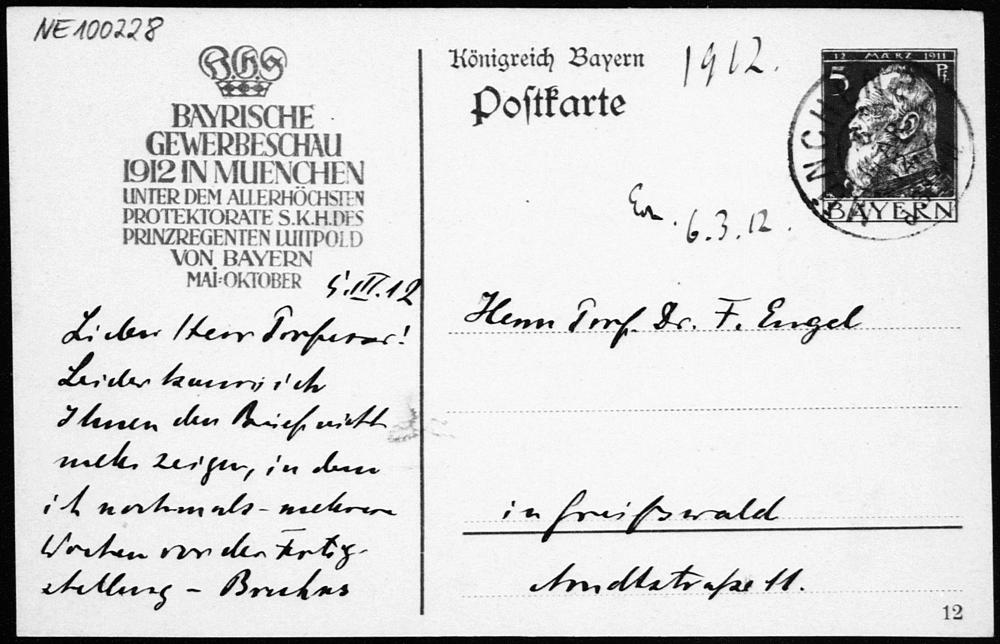 NE100228
BAYRISCHE
GEWERBESCHAU
1912 IN MUENCHEN
UNTER DEM ALLERHÖCHSTEN
PROTEKTORATE S.K.H.DES
PRINZREGENTEN LUITPOLD
VON BAYERN
MAI-OKTOBER
5.III.12
Lieber Herr Professor!
Leider kann ich
Ihnen den Brief nicht
mehr zeigen, in dem
ich nochmals - mehrere
Wochen vor der Fertig-
stellung - Bruhns
Königreich Bayern
Postkarte
1912.
12 MÄRZ 1911
5 Pf
BAYERN
6.3.12.
Herrn Prof. Dr. F. Engel
in Greifswald
Arndtstraße 11.
12